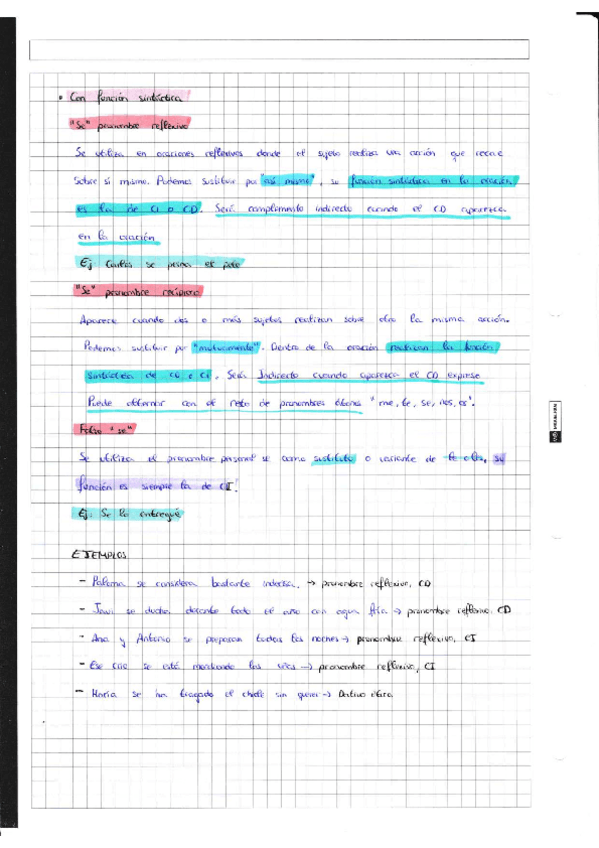 • Con función sintáctica
"Se" pronombre reflexivo
Se utiliza en oraciones reflexivas donde el sujeto realiza una acción que recae
sobre sí mismo. Podemos sustituir por "a sí mismo", su función sintáctica en la oración
es la de CI o CD. Será complemento indirecto cuando el CD aparezca
en la oración
Ej: Carlos se peina el pelo
"Se" pronombre recíproco
Aparece cuando dos o más sujetos realizan sobre otro la misma acción.
Podemos sustituir por "mutuamente". Dentro de la oración realizan la función
sintáctica de CD o CI. Será Indirecto cuando aparezca el CD expreso
Puede alternar con el resto de pronombres átonos "me, te, se, nos, os".
Falso "se"
Se utiliza el pronombre personal se como sustituto o variante de le o les, su
función es siempre la de CI.
Ej: Se lo entregué
EJEMPLOS
- Paloma se considera bastante indecisa. → pronombre reflexivo, CD
- Javi se ducha durante todo el año con agua fría → pronombre reflexivo. CD
- Ana y Antonio se preparan todas las noches → pronombre reflexivo. CI
- Ese crío se está mordiendo las uñas → pronombre reflexivo, CI
- María se ha tragado el chicle sin querer → Dativo ético.